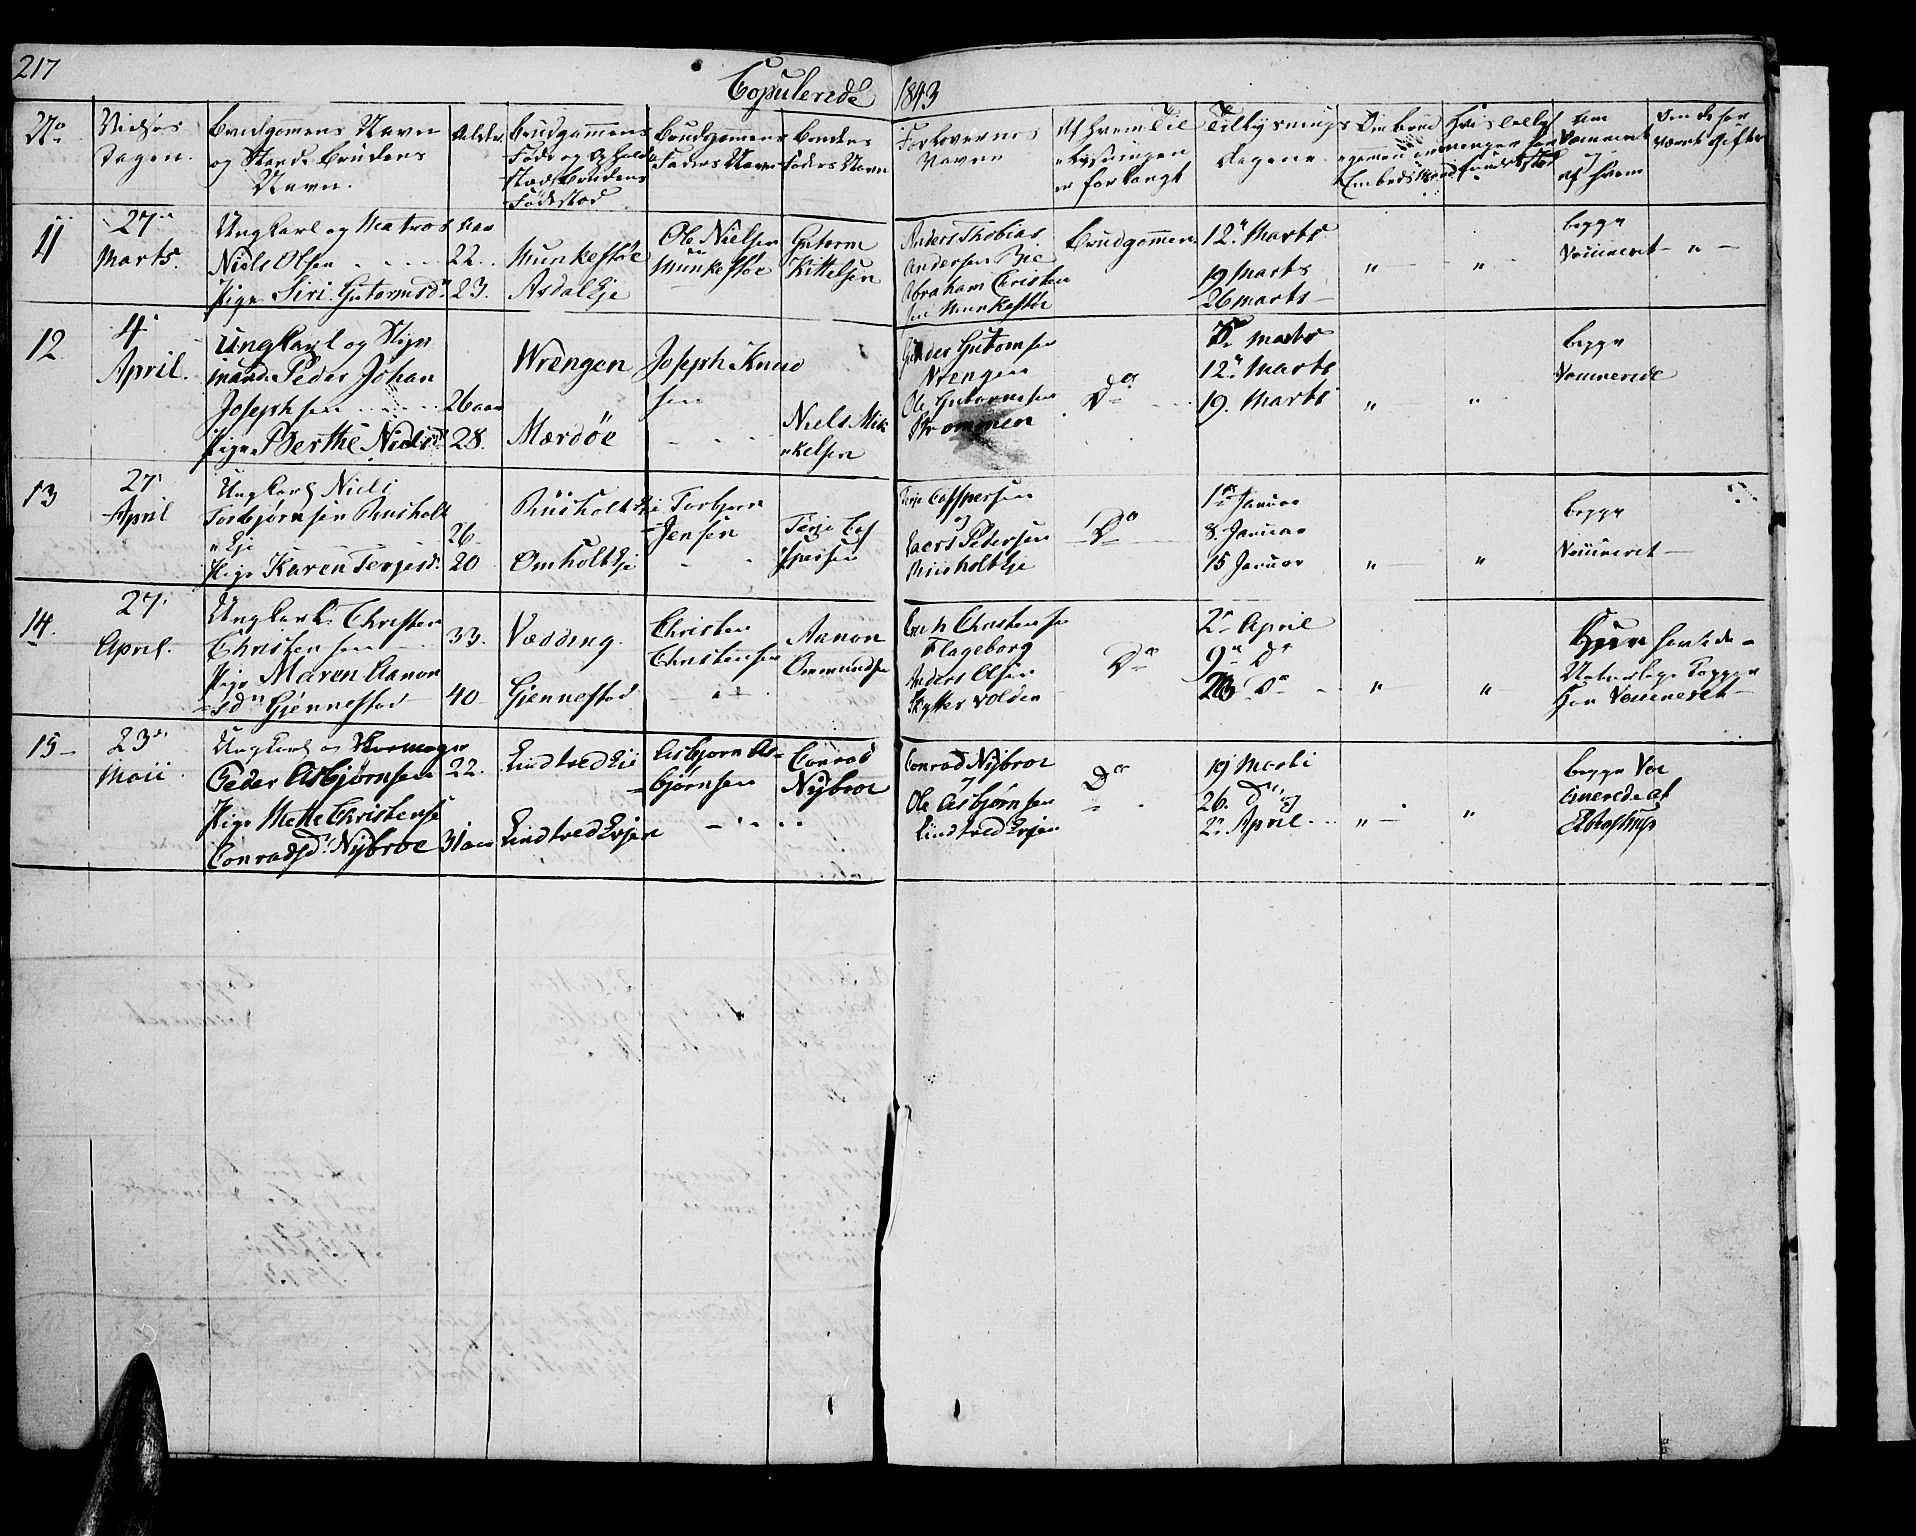 217
Copulerede 1843
No
Vielses
Dagen.
Brudgomens Navn
og Stand. Brudens
Navn.
Alder.
Brudgommens
Føde og Opholds
Sted. Brudens
Fødested
Brudgomens
Faders Navn
Brudens
Faders Navn
Forlovernes
Navne
Af hvem Til
lysningen
er forlangt
Tillysnings
Dagene
Om
Vaccineret
af hvem
11
27de
Marts.
Ungkarl og Matros
Niels Olsen
Pige Siri Gutormsd.
Aar
22.
23.
Munkeføe
Asdal Eje
Ole Nielsen
Munkeføe
Gutorm
Kittelsen
Anders Thobias
Andersen Bie
Abraham Christen
sen Munkeføe
Brudgomen
12te Marts
19 Marts
26 Marts
begge
Vaccineret
12
4de
April.
Ungkarl og Styr
mand Peder Johan
Josephsen
Pige Berthe Nielsd.
26 aar
28.
Wrengen
Mærdøe
Joseph Knud
sen
Niels Mik
kelsen
Gutomsen
Wrengen
Ole Gutormsen
Brommen
Do
Marts
12te Marts
19. Marts
begge
Vaccinerede
13
27
April
Ungkarl Niels
Torbjørnsen Rusholt
Eje
Pige Karen Terjesd.
26
20
Rusholt Eie
Omholt Eje
Torbjørn
Jensen
Terje Cas
persen
Terje Caspersen
og
Laers Pedersen
Rusholt Eje
Do
1ste Januar
8. Januar
15 Januar
begge
Vaccineret
14.
27
April.
Ungkarl Christen
Christensen
Pige Maren Aanon
sdn Gjennestad
33.
40
Vedding.
Gjennestad
Christen
Christensen
Aanon
Ommundsen
Christensen
Flageborg
Anders Olsen
Skytter Volden
Do
2den April
9de Do
Do
Hun havt de
Naturlige Kopper
Han Vaccineret
15
23de
Maii
Ungkarl og
Peder Asbjørnsen
Pige Mette Christense
Conradsd. Nybroe
22.
31 aar
Lindtved Eie
Lindtved Eyer
Asbjørn As-
bjørnsen
Conrad
Nybroe
Conrad Nybroe
og
Ole Asbjørnsen
Lindtved Eyer
Do
19 Marti
26. Do og
2den April
begge Vac
cinerede af